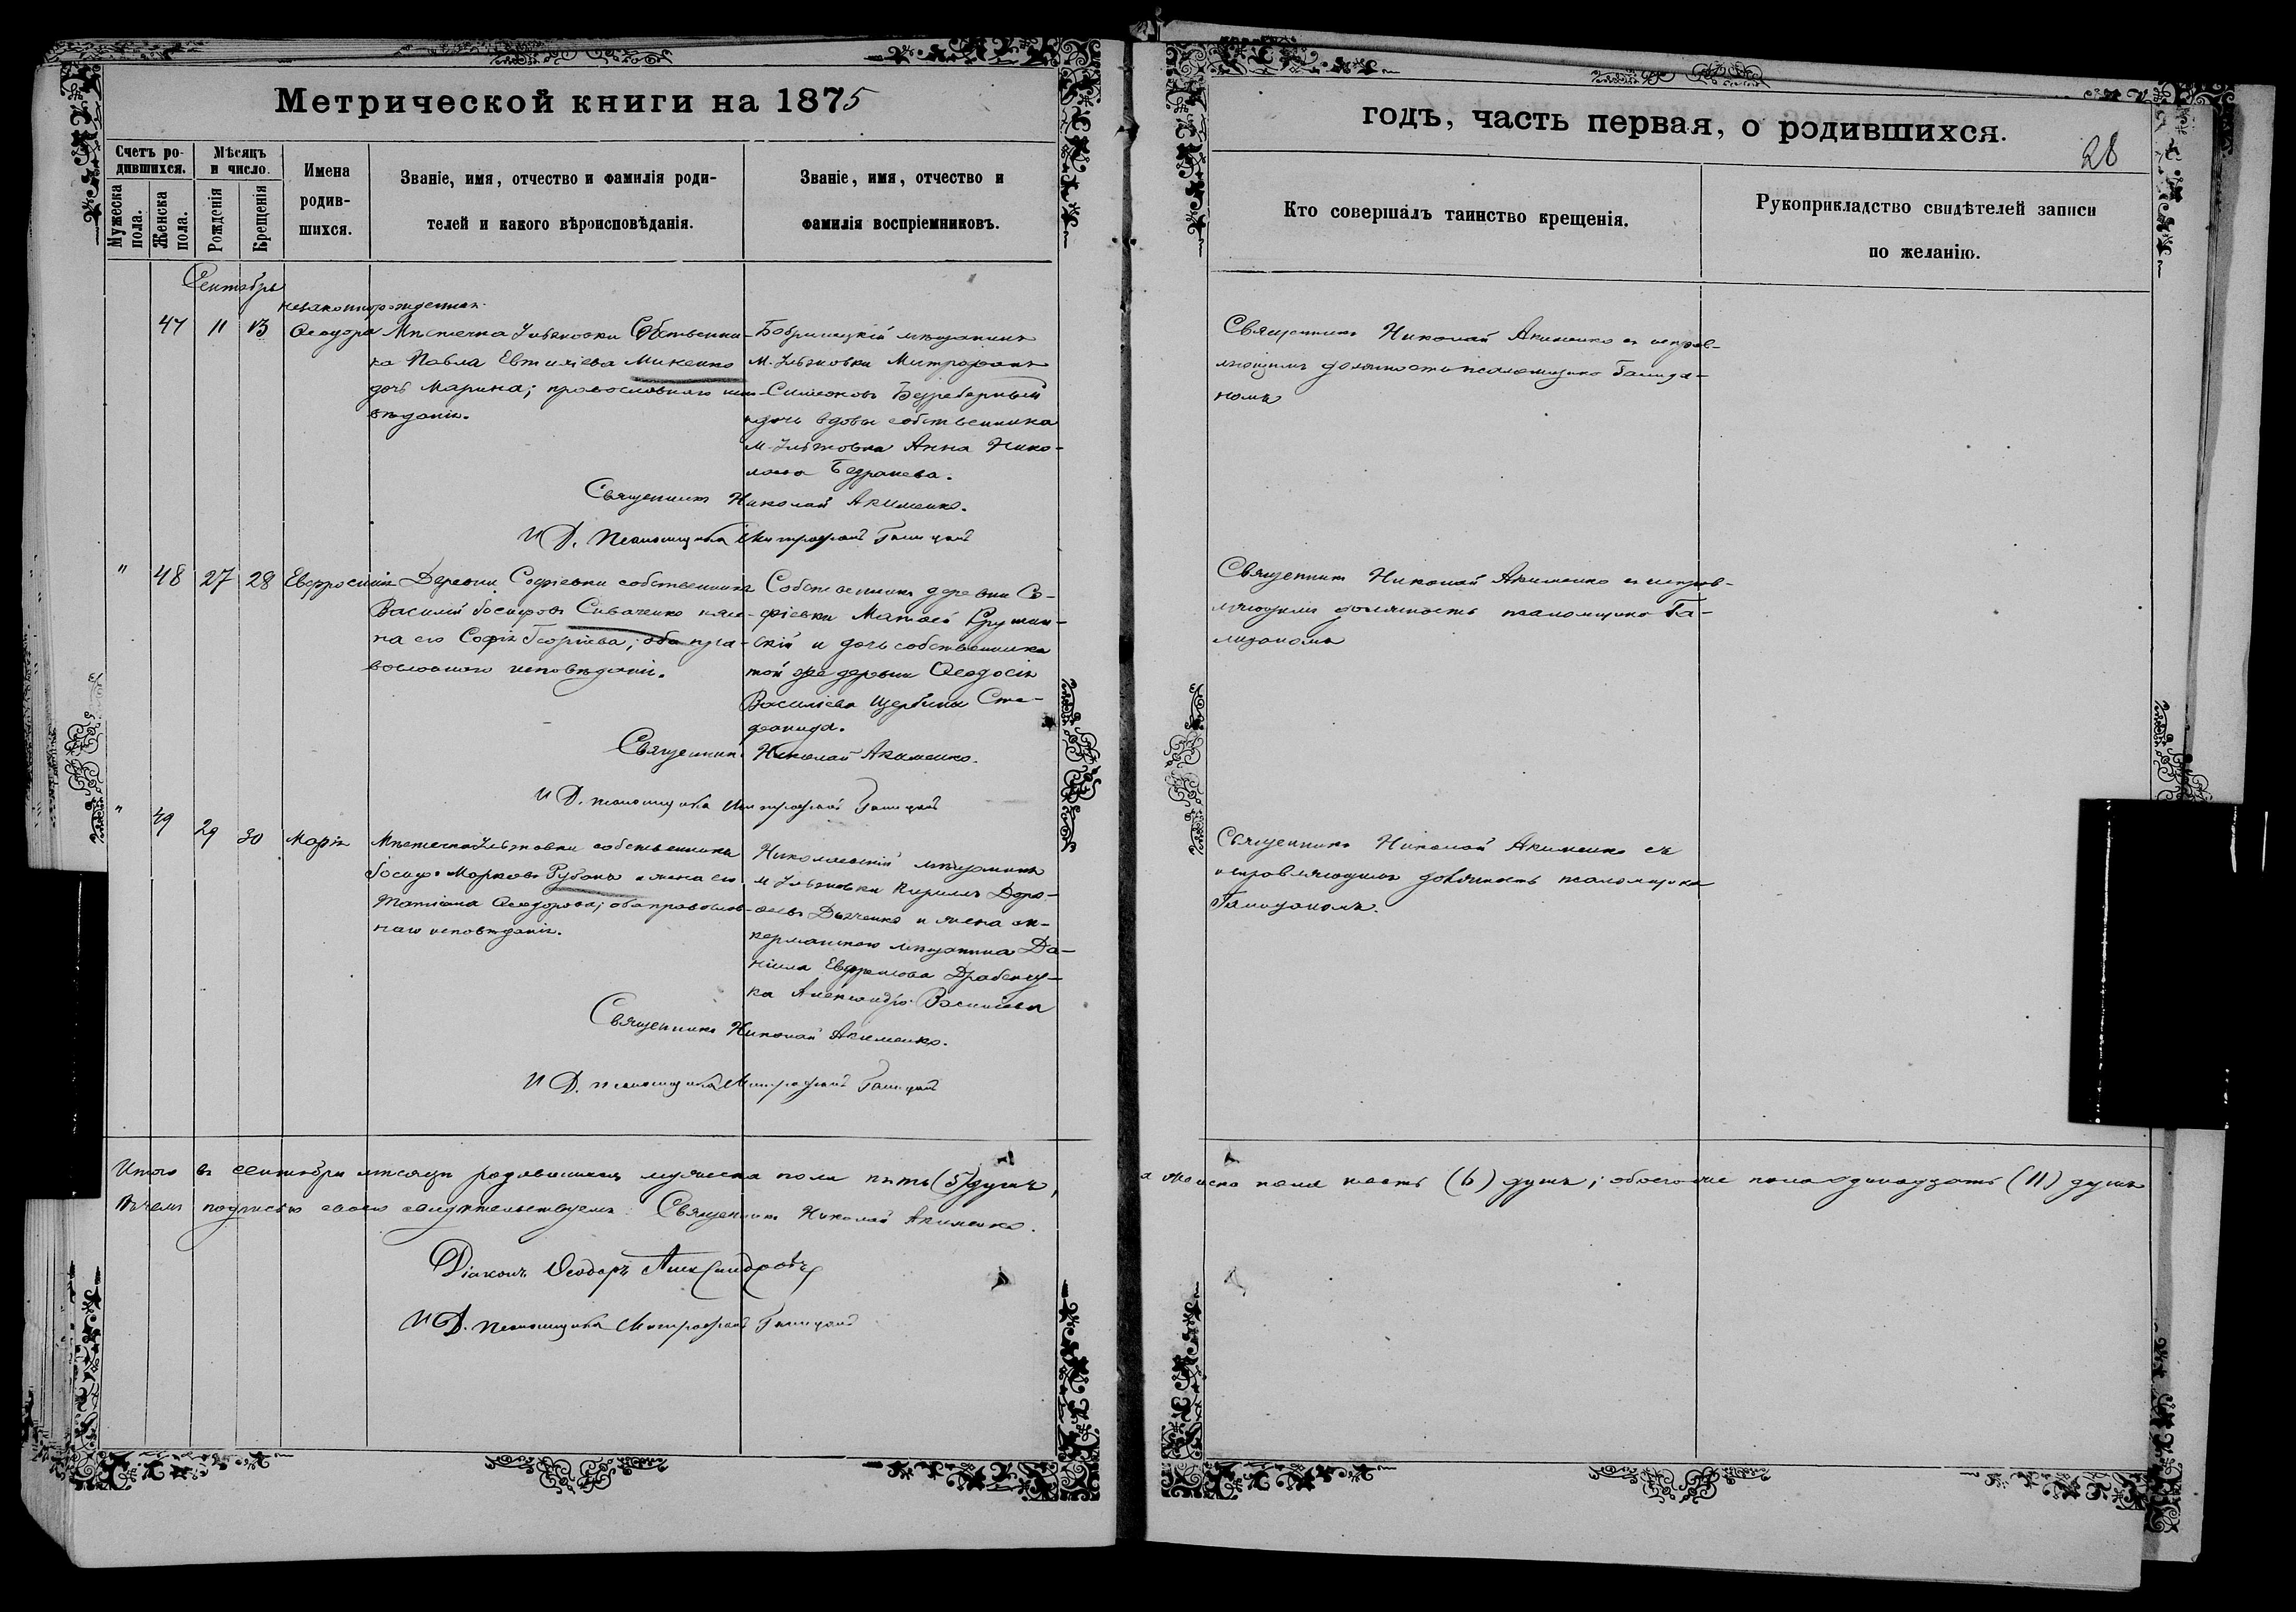 Метрической книги на 1875
годъ, часть первая, о родившихся.
28
Счетъ ро-
дившихся.
Мужеска
пола.
Женска
пола.
Мѣсяцъ
и число.
Рожденія
Крещенія
Имена
родив-
шихся.
Званіе, имя, отчество и фамилія роди-
телей и какого вѣроисповѣданія.
Званіе, имя, отчество и
фамилія воспріемниковъ.
Кто совершалъ таинство крещенія.
Рукоприкладство свидѣтелей записи
по желанію.
Сентябрь
незаконнорожденная
47 11 13 Ѳеодора
Мѣстечка Ульяновки Собственни-
ка Павла Евтихіева Михенко
дочь Марина; православнаго испо-
вѣданія.
Бобринецкій мѣщанинъ
м. Ульяновки Митрофанъ
Симеоновъ Безреберный
и дочь вдовы собственника
м. Ульяновки Анна Нико-
лаева
Священникъ Николай Акименко.
И Д. Псаломщика Митрофанъ Галицанъ
Священникъ Николай Акименко съ исправ-
ляющимъ должность псаломщика Галица-
номъ
" 48 27 28 Евфросинія
Деревни Софіевки собственника
Василій Іосифовъ Сиваченко и же-
на его Софія Георгіева; оба пра-
вославнаго исповѣданія.
Собственникъ деревни Со-
фіевки Матѳей Крушин-
скій и дочь собственника
той же деревни Ѳеодосія
Василіева Щербины Сте-
фанида.
Священникъ Николай Акименко.
И Д. псаломщика Митрофанъ Галицанъ
Священникъ Николай Акименко съ исправ-
ляющимъ должность псаломщика Га-
лицаномъ
" 49 29 30 Марія
Мѣстечка Ульяновки собственникъ
Іосифъ Марковъ Рубанъ и жена его
Татіана Ѳеодорова; оба православ-
наго исповѣданія.
Николаевскій мѣщанинъ
м Ульяновки Кириллъ Доро-
ѳеевъ Дьяченко и жена ак-
керманскаго мѣщанина Да-
ніила Евфремова
ка Александра Василіева
Священникъ Николай Акименко.
И Д. псаломщика Митрофанъ Галицанъ
Священникъ Николай Акименко съ
исправляющимъ должность псаломщика
Галицаномъ.
Итого въ сентябрѣ мѣсяцѣ родившихся мужеска пола пять (5) душъ,
а женска пола шесть (6) душъ; обоего же пола одинадцать (11) душъ
Въ чемъ подписью своею свидѣтельствуемъ: Священникъ Николай Акименко.
Діаконъ Ѳеодоръ Александровъ
И Д. псаломщика Митрофанъ Галицанъ